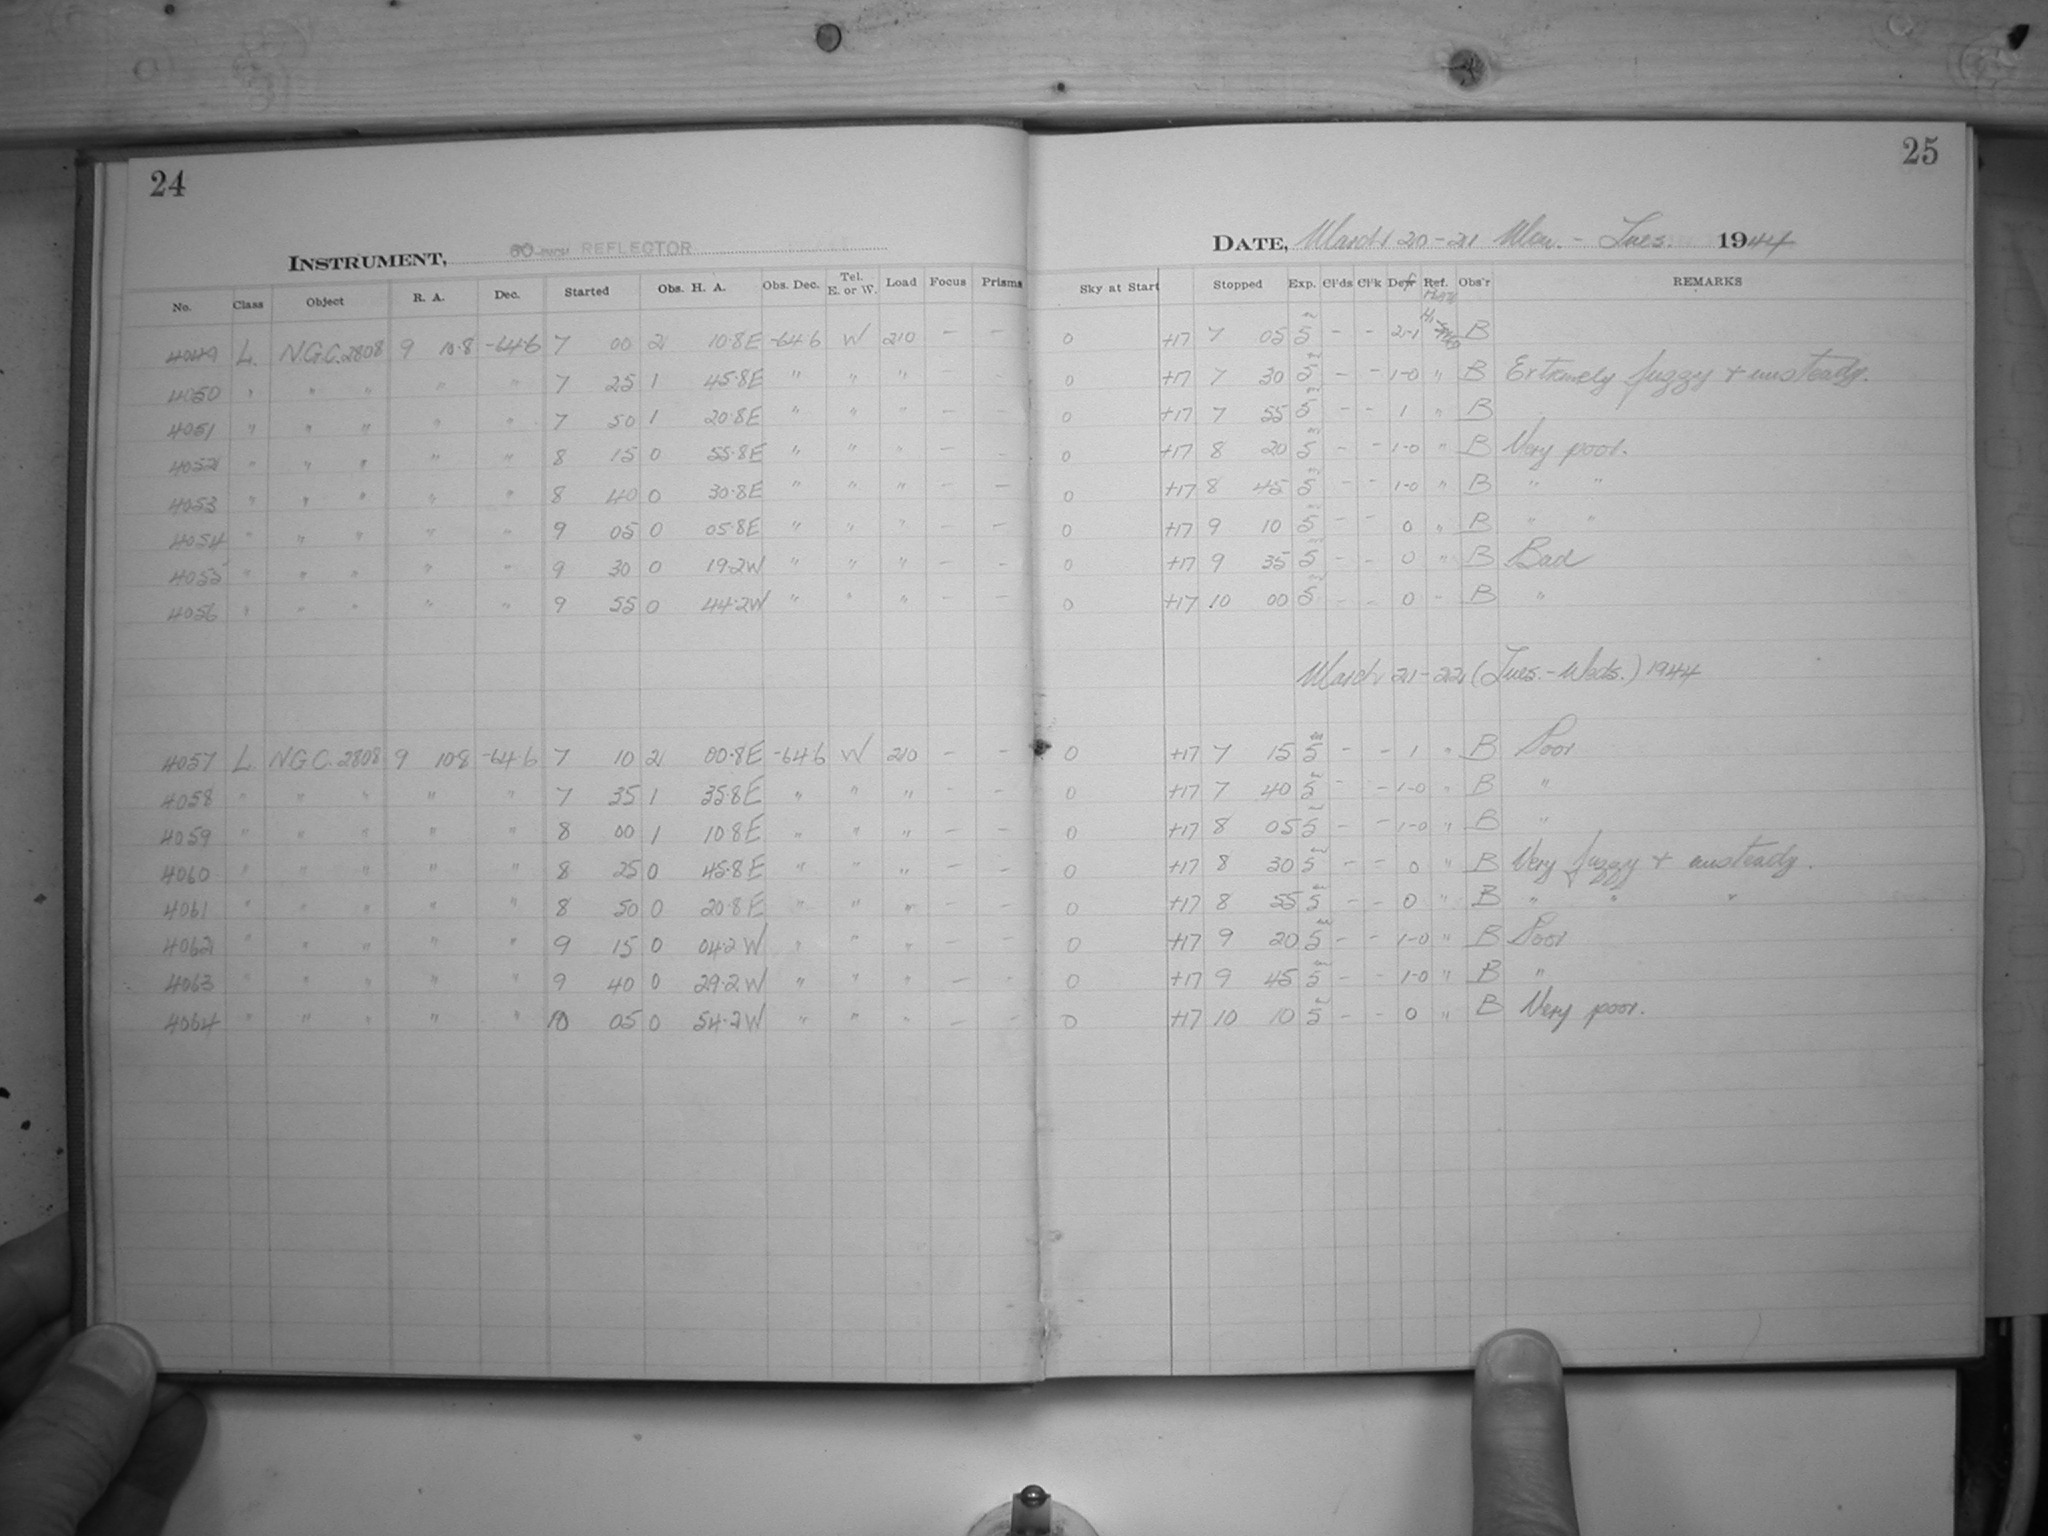 24
25
INSTRUMENT, 60-INCH REFLECTOR
DATE, March 20-21 Mon. - Tues. 1944
No. Class Object R. A. Dec. Started Obs. H. A. Obs. Dec. Tel. E. or W. Load Focus Prisms Sky at Start Stopped Exp. Cl'ds Cl'k Def Ref. Obs'r REMARKS
4049 L. N.G.C. 2808 9 10.8 -64.6 7 00 2 10.8E -64.6 W 210 - - 0 +17 7 05 5m - - 2-1 B
4050 " " " " " 7 25 1 45.8E " " " - - 0 +17 7 30 5m - - 1-0 " B Extremely fuzzy + unsteady.
4051 " " " " " 7 50 1 20.8E " " " - - 0 +17 7 55 5m - - 1 " B
4052 " " " " " 8 15 0 55.8E " " " - - 0 +17 8 20 5m - - 1-0 " B Very poor.
4053 " " " " " 8 40 0 30.8E " " " - - 0 +17 8 45 5m - - 1-0 " B " "
4054 " " " " " 9 05 0 05.8E " " " - - 0 +17 9 10 5m - - 0 " B " "
4055 " " " " " 9 30 0 19.2W " " " - - 0 +17 9 35 5m - - 0 " B Bad
4056 " " " " " 9 55 0 44.2W " " " - - 0 +17 10 00 5m - - 0 " B "
March 21-22 (Tues. - Weds.) 1944
4057 L. N.G.C. 2808 9 10.8 -64.6 7 10 2 00.8E -64.6 W 210 - - 0 +17 7 15 5m - - 1 " B Poor
4058 " " " " " 7 35 1 35.8E " " " - - 0 +17 7 40 5m - - 1-0 " B "
4059 " " " " " 8 00 1 10.8E " " " - - 0 +17 8 05 5m - - 1-0 " B "
4060 " " " " " 8 25 0 45.8E " " " - - 0 +17 8 30 5m - - 0 " B Very fuzzy + unsteady.
4061 " " " " " 8 50 0 20.8E " " " - - 0 +17 8 55 5m - - 0 " B " " "
4062 " " " " " 9 15 0 04.2W " " " - - 0 +17 9 20 5m - - 1-0 " B Poor
4063 " " " " " 9 40 0 29.2W " " " - - 0 +17 9 45 5m - - 1-0 " B "
4064 " " " " " 10 05 0 54.2W " " " - - 0 +17 10 10 5m - - 0 " B Very poor.